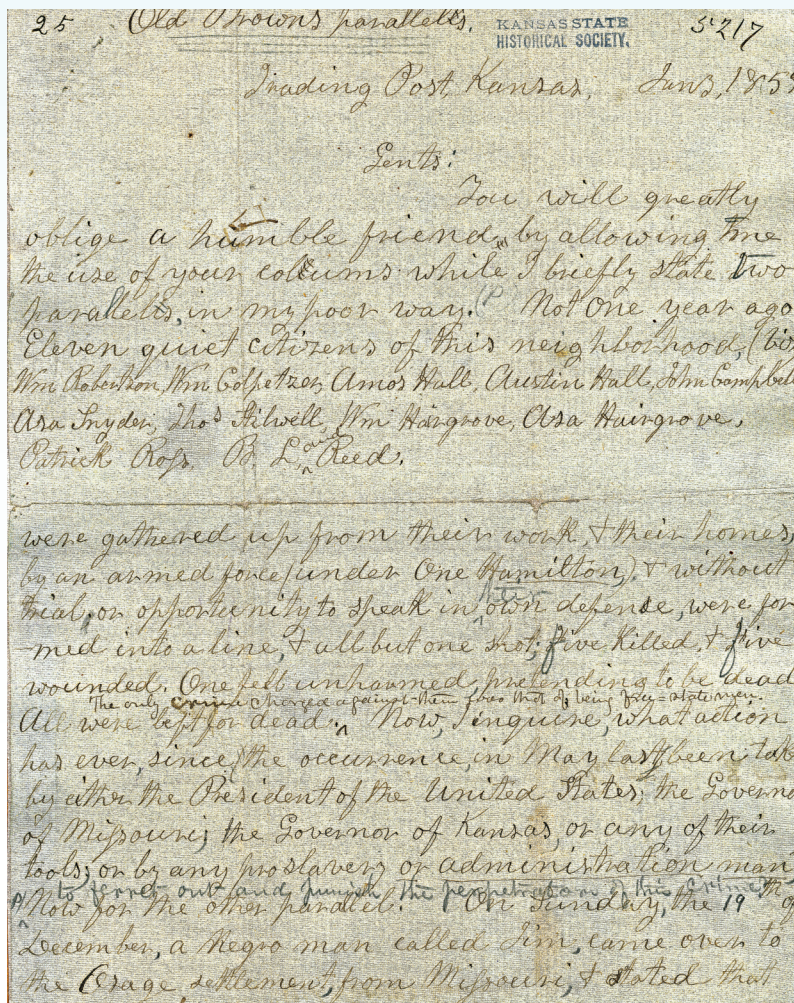 25 Old Browns parallells. KANSAS STATE HISTORICAL SOCIETY. 5217
Trading Post, Kansas, Jan 3, 185
Gents:
You will greatly
oblige a humble friend, by allowing me
the use of your collums while I briefly state two
parallells, in my poor way. (P) Not One year ago
Eleven quiet citizens of this neighborhood, (viz
Wm Robertson, Wm Colpetzer, Amos Hall, Austin Hall, John Campbell
Asa Snyder, Thos Stilwell, Wm Hairgrove, Asa Hairgrove,
Patrick Ross, B. L. and Reed.
were gathered up from their work, & their homes,
by an armed force (under One Hamilton), & without
trial, or opportunity to speak in their own defense, were for
-med into a line, & all but one shot; five killed, & five
wounded. One fell unharmed, pretending to be dead
The only crime charged against them was that of being free-state men.
All were left for dead. Now, I inquire, what action
has ever, since the occurrence, in May last, been tak
by either the President of the United States; the Governo
of Missouri; the Governor of Kansas, or any of their
tools; or by any proslavery or administration man
to ferret out and punish the perpetrators of this crime
Now for the other parallel. On Sunday, the 19th of
December, a Negro man called Jim, came over to
the Osage settlement, from Missouri, & stated that